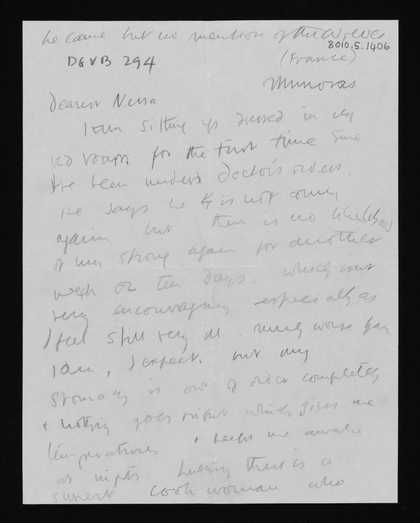 he came but no mention of the
8010.5.1406
DGVB 294
(France)
Dearest Nessa
I am sitting up dressed in my
bed room for the first time since
I've been under doctor's orders.
He says he is not coming
again but there is no likelihood
of my strong again for another
week or ten days. which isnt
very encouraging especially as
I feel still very ill. much worse than
I am, I expect. but my
stomach is out of order completely
& nothing goes right which gives me
temperatures & keeps me awake
at nights. Luckily there is a
cook woman who